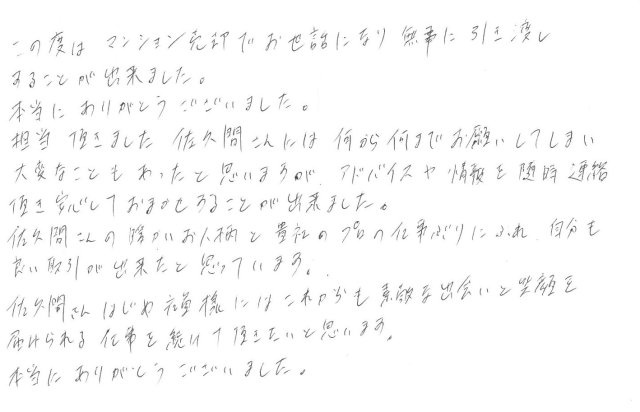 この度は マンション売却でお世話になり 無事に引き渡し
することが出来ました。
本当に ありがとう ございました。
担当 頂きました 佐久間さんには 何から何までお願いしてしまい
大変なことも あったと思いますが、アドバイスや 情報を 随時 連絡
頂き安心しておまかせすることが出来ました。
佐久間さんの 暖かいお人柄と 貴社の プロの仕事ぶりにふれ 自分も
良い取引が 出来たと 思っています。
佐久間さん はじめ 社員様にはこれからも 素敵な出会いと笑顔を
届けられる 仕事を続けて 頂きたいと思います。
本当に ありがとう ございました。